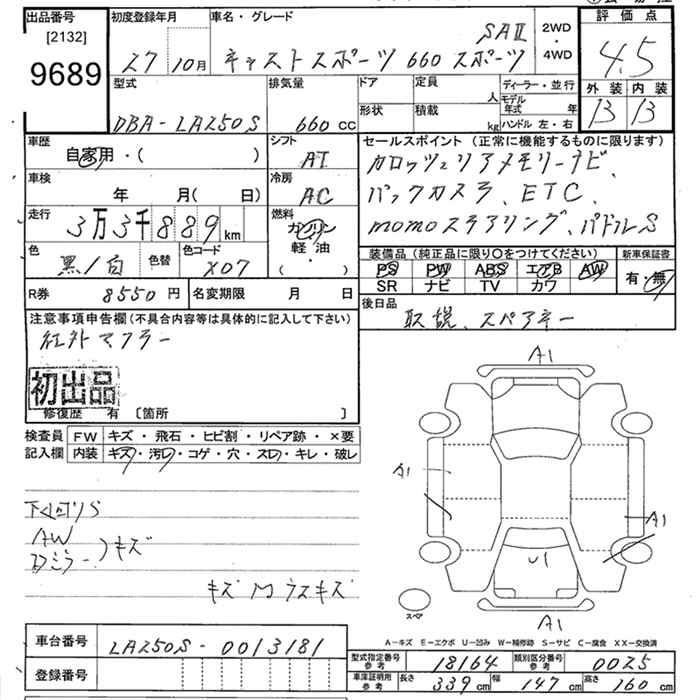 出品番号
[2132]
9689
初度登録年月
27 10月
車名・グレード
キャストスポーツ 660 スポーツ SAⅡ
2WD
・
4WD
評価点
4.5
外装 内装
B B
型式
DBA-LA250S
排気量
660 cc
ドア
形状
定員 人
積載 kg
ディーラー・並行
モデル年式 年
ハンドル 左・右
車歴
自家用・( )
シフト
AT
車検
年 月( 日)
冷房
AC
走行
3万3千889km
燃料
ガソリン
軽・油
・( )
色
黒/白
色替
色コード
X07
R券 8550円
名変期限 月 日
セールスポイント (正常に機能するものに限ります)
カロッツェリアメモリーナビ、
バックカメラ、ETC、
momoステアリング、パドルS
装備品 (純正品に限り〇をつけてください)
PS PW ABS エアB AW
SR ナビ TV カワ
新車保証書
有・無
後日品
取説、スペアキー
注意事項申告欄 (不具合内容等は具体的に記入して下さい)
社外マフラー
初出品
修復歴 有 [箇所 ]
検査員記入欄
FW キズ・飛石・ヒビ割・リペア跡・×要
内装 キズ・汚レ・コゲ・穴・スレ・キレ・破レ
下回りS
AW
Dミラー)キズ
キズ M ウスキズ
A1
A1
A1
U1
A1
スペア
A-キズ E-エクボ U-凹み W-補修跡 S-サビ C-腐食 XX-交換済
車台番号 LA250S-0013181
登録番号
型式指定番号 参考 18164
類別区分番号 参考 0025
車庫証明用 参考 長さ 339cm 幅 147cm 高さ 160cm